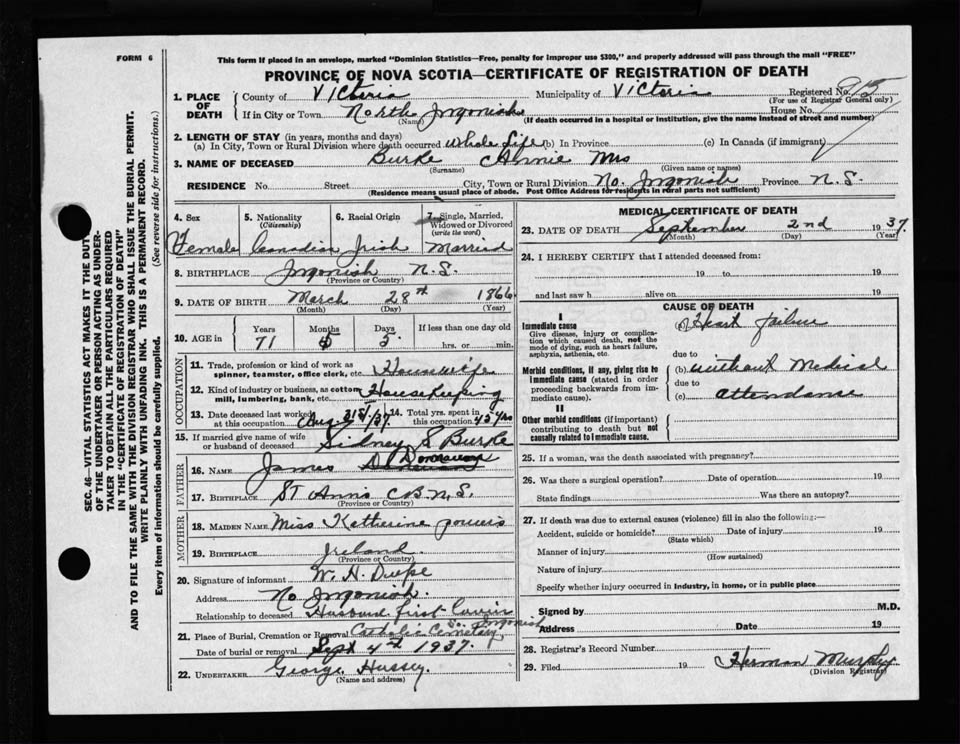 FORM 6
This form If placed in an envelope, marked "Dominion Statistics—Free, penalty for improper use $300," and properly addressed will pass through the mail "FREE"
PROVINCE OF NOVA SCOTIA—CERTIFICATE OF REGISTRATION OF DEATH
SEC. 46—VITAL STATISTICS ACT MAKES IT THE DUTY
OF THE UNDERTAKER OR PERSON ACTING AS UNDER-
TAKER TO OBTAIN ALL THE PARTICULARS REQUIRED
IN THE "CERTIFICATE OF REGISTRATION OF DEATH"
AND TO FILE THE SAME WITH THE DIVISION REGISTRAR WHO SHALL ISSUE THE BURIAL PERMIT.
WRITE PLAINLY WITH UNFADING INK. THIS IS A PERMANENT RECORD.
Every item of information should be carefully supplied. (See reverse side for instructions.)
1. PLACE OF DEATH
County of Victoria Municipality of Victoria Registered No. 95
(For use of Registrar General only)
If in City or Town North Ingonish House No.
(Name) (If death occurred in a hospital or institution, give the name instead of street and number)
2. LENGTH OF STAY (in years, months and days)
(a) In City, Town or Rural Division where death occurred Whole Life (b) In Province (c) In Canada (if immigrant)
3. NAME OF DECEASED Burke Annie Mrs
(Surname) (Given name or names)
RESIDENCE No. Street City, Town or Rural Division No. Ingonish Province N.S.
(Residence means usual place of abode. Post Office Address for residents in rural parts not sufficient)
4. Sex
Female
5. Nationality
(Citizenship)
Canadian
6. Racial Origin
Irish
7. Single, Married,
Widowed or Divorced
(write the word)
Married
8. BIRTHPLACE Ingonish N.S.
(Province or Country)
9. DATE OF BIRTH March 28th 1866
(Month) (Day) (Year)
10. AGE in
Years Months Days If less than one day old
71 5 5 hrs. or min.
OCCUPATION
11. Trade, profession or kind of work as
spinner, teamster, office clerk, etc. Housewife
12. Kind of industry or business, as cotton
mill, lumbering, bank, etc. Housekeeping
13. Date deceased last worked
at this occupation Aug 31st/37
14. Total yrs. spent in
this occupation 45 yrs
15. If married give name of wife
or husband of deceased Sidney S Burke
FATHER
16. NAME James Donovan
17. BIRTHPLACE St Anns C.B. N.S.
(Province or Country)
MOTHER
18. MAIDEN NAME Miss Katherine powers
19. BIRTHPLACE Ireland
(Province or Country)
20. Signature of informant W. H. Dupe
Address No Ingonish.
Relationship to deceased Husband first Cousin
21. Place of Burial, Cremation or Removal Catholic Cemetary So. Ingonish
Date of burial or removal Sept 4th 1937.
22. UNDERTAKER George Hussey.
(Name and address)
MEDICAL CERTIFICATE OF DEATH
23. DATE OF DEATH September 2nd 1937.
(Month) (Day) (Year)
24. I HEREBY CERTIFY that I attended deceased from:
19 to 19
and last saw h alive on 19
CAUSE OF DEATH
I
Immediate cause
Give disease, injury or complica-
tion which caused death, not the
mode of dying, such as heart failure,
asphyxia, asthenia, etc.
(a) Heart failure
due to
Morbid conditions, if any, giving rise to
immediate cause (stated in order
proceeding backwards from im-
mediate cause).
(b) without Medical
due to
(c) attendance
II
Other morbid conditions (if important)
contributing to death but not
causally related to immediate cause.
25. If a woman, was the death associated with pregnancy?
26. Was there a surgical operation? Date of operation 19
State findings Was there an autopsy?
27. If death was due to external causes (violence) fill in also the following:—
Accident, suicide or homicide? Date of injury 19
(State which)
Manner of injury
(How sustained)
Nature of injury
Specify whether injury occurred in industry, in home, or in public place
Signed by M.D.
Address Date 19
28. Registrar's Record Number
29. Filed 19 Herman Murphy
(Division Registrar)